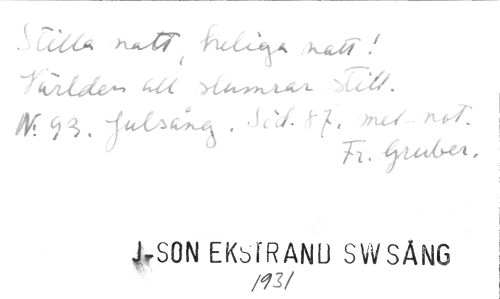 Stilla natt, heliga natt!
Världen all slumrar still.
N: 93. Julsång. Sid. 87. med not.
Fr. Gruber.
J-SON EKSTRAND SW SÅNG
1931